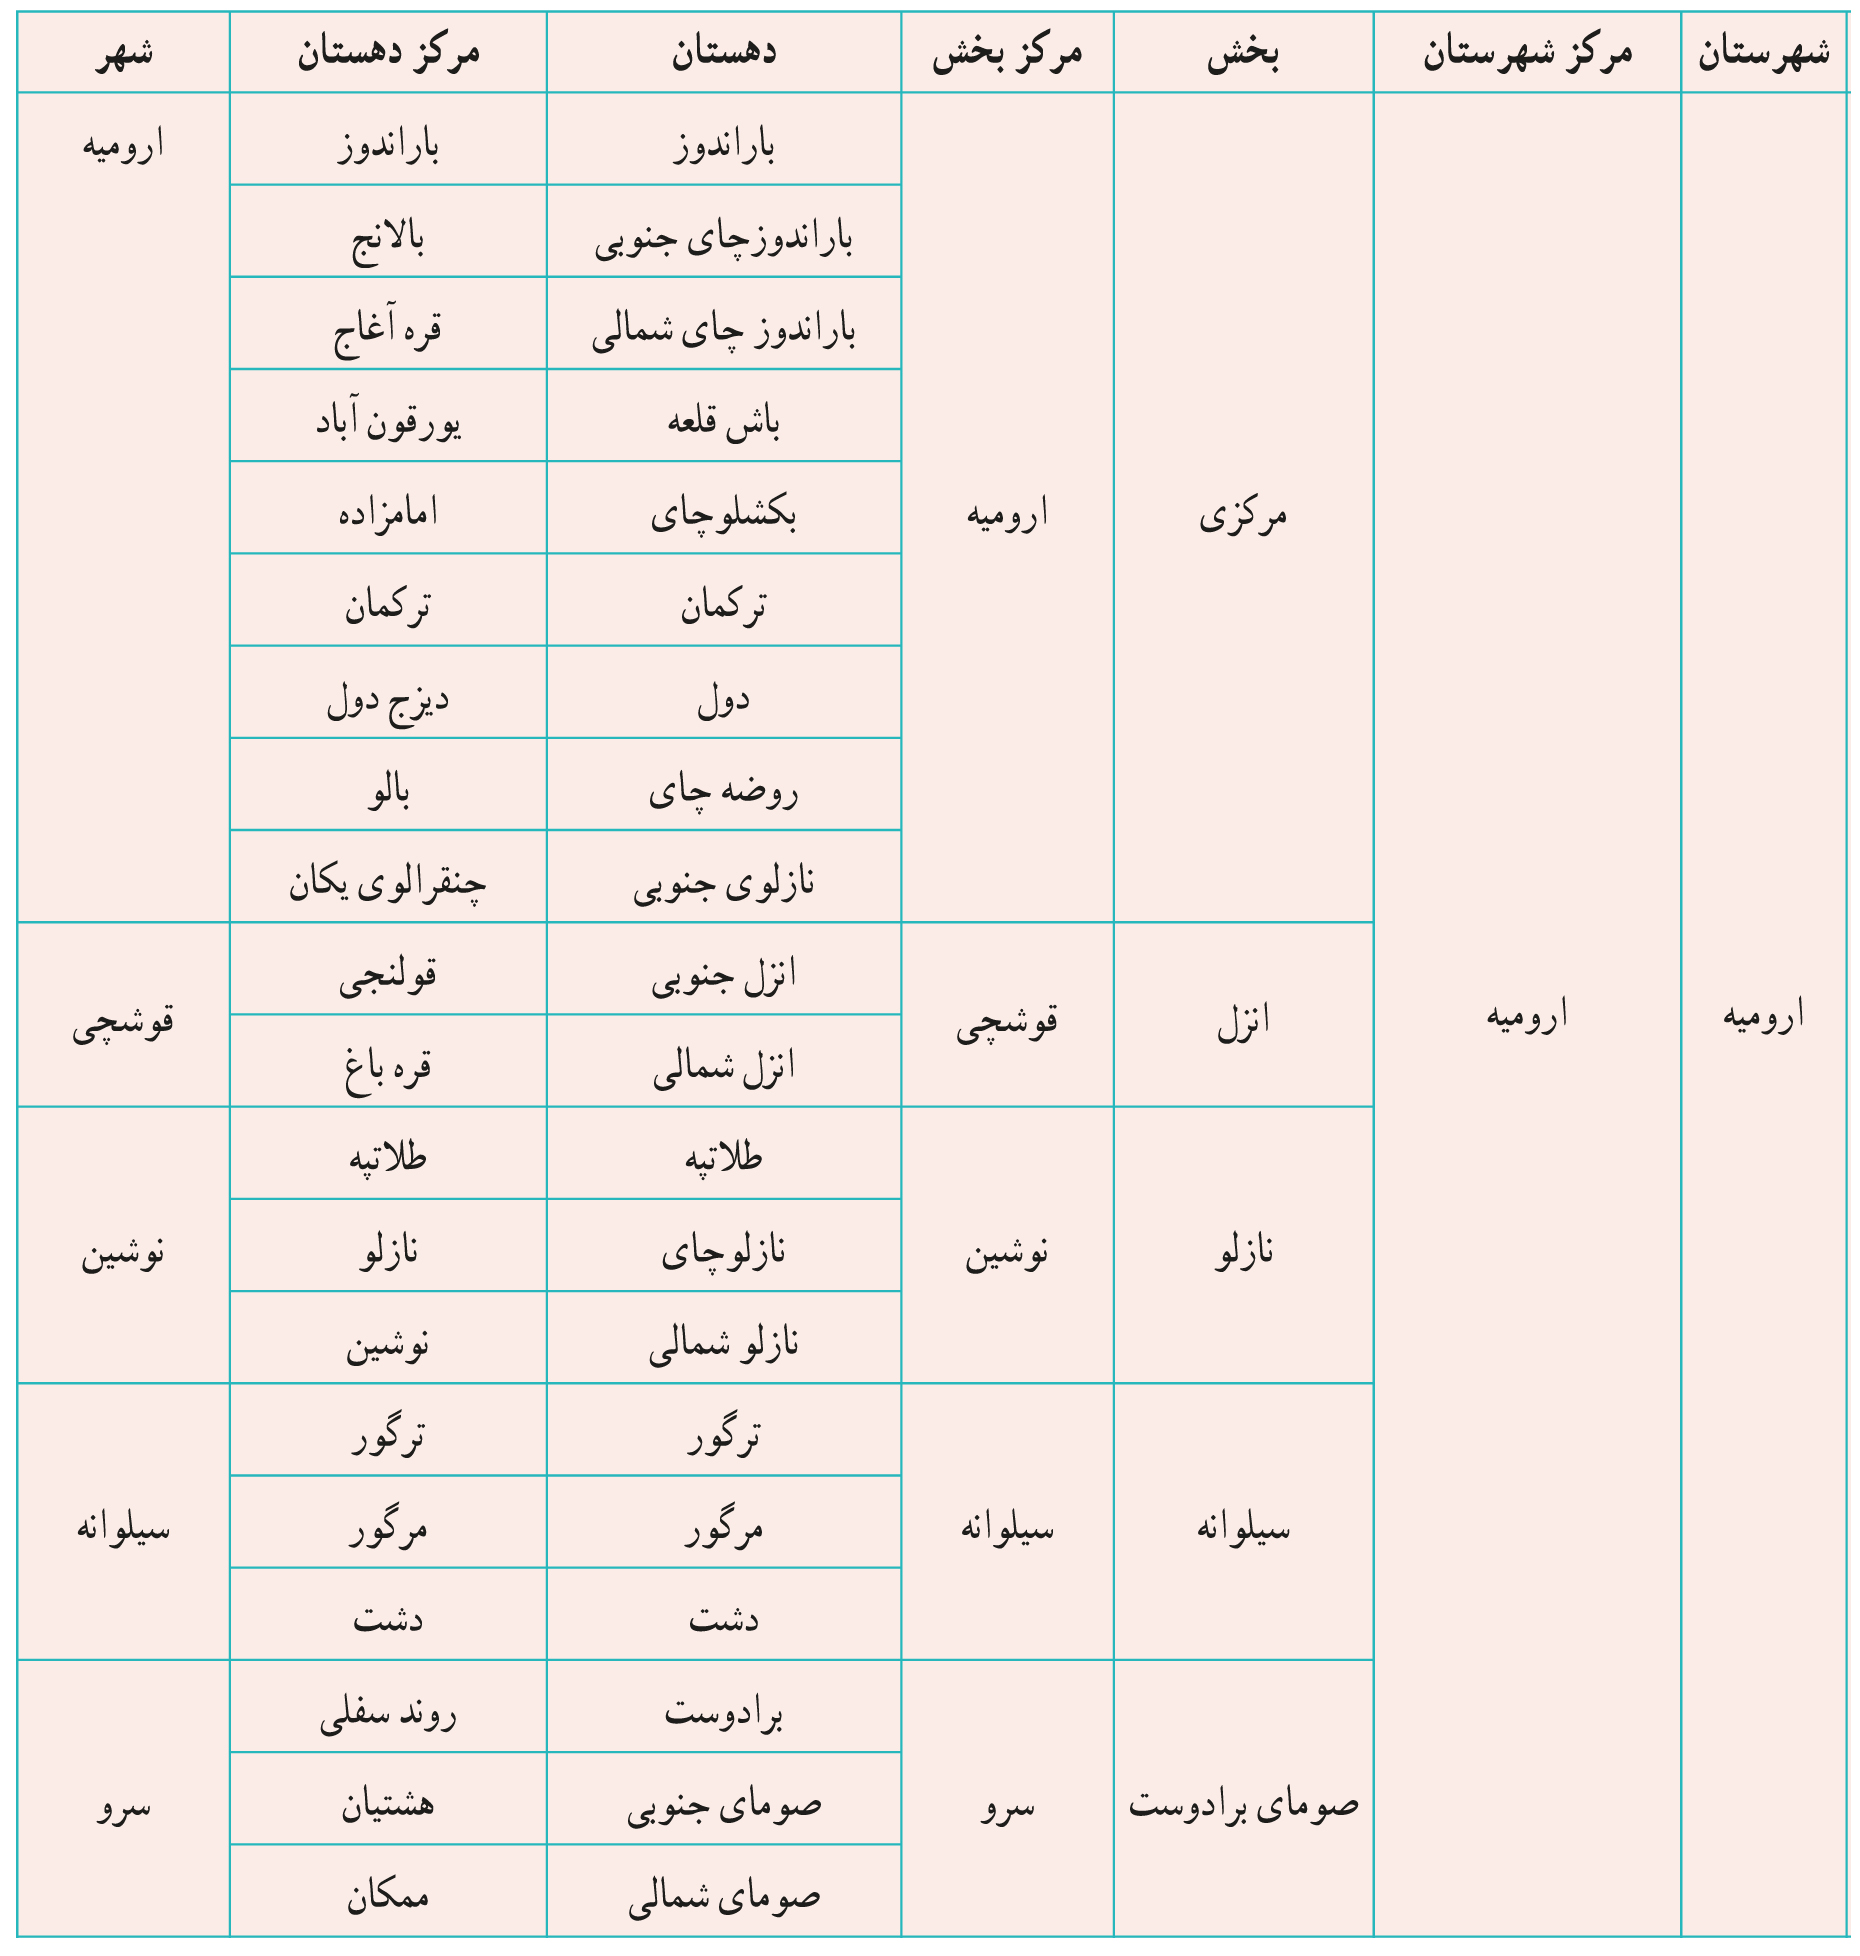 شهرستان	مرکز شهرستان	بخش	مرکز بخش	دهستان	مرکز دهستان	شهر
ارومیه	ارومیه	مرکزی	ارومیه	باراندوز	باراندوز	ارومیه
باراندوزچای جنوبی	بالانج
باراندوز چای شمالی	قره آغاج
باش قلعه	یورقون آباد
بکشلوچای	امامزاده
ترکمان	ترکمان
دول	دیزج دول
روضه چای	بالو
نازلوی جنوبی	چنقرالوی یکان
انزل	قوشچی	انزل جنوبی	قولنجی	قوشچی
انزل شمالی	قره باغ
نازلو	نوشین	طلاتپه	طلاتپه	نوشین
نازلوچای	نازلو
نازلو شمالی	نوشین
سیلوانه	سیلوانه	ترگور	ترگور	سیلوانه
مرگور	مرگور
دشت	دشت
صومای برادوست	سرو	برادوست	روند سفلی	سرو
صومای جنوبی	هشتیان
صومای شمالی	ممکان